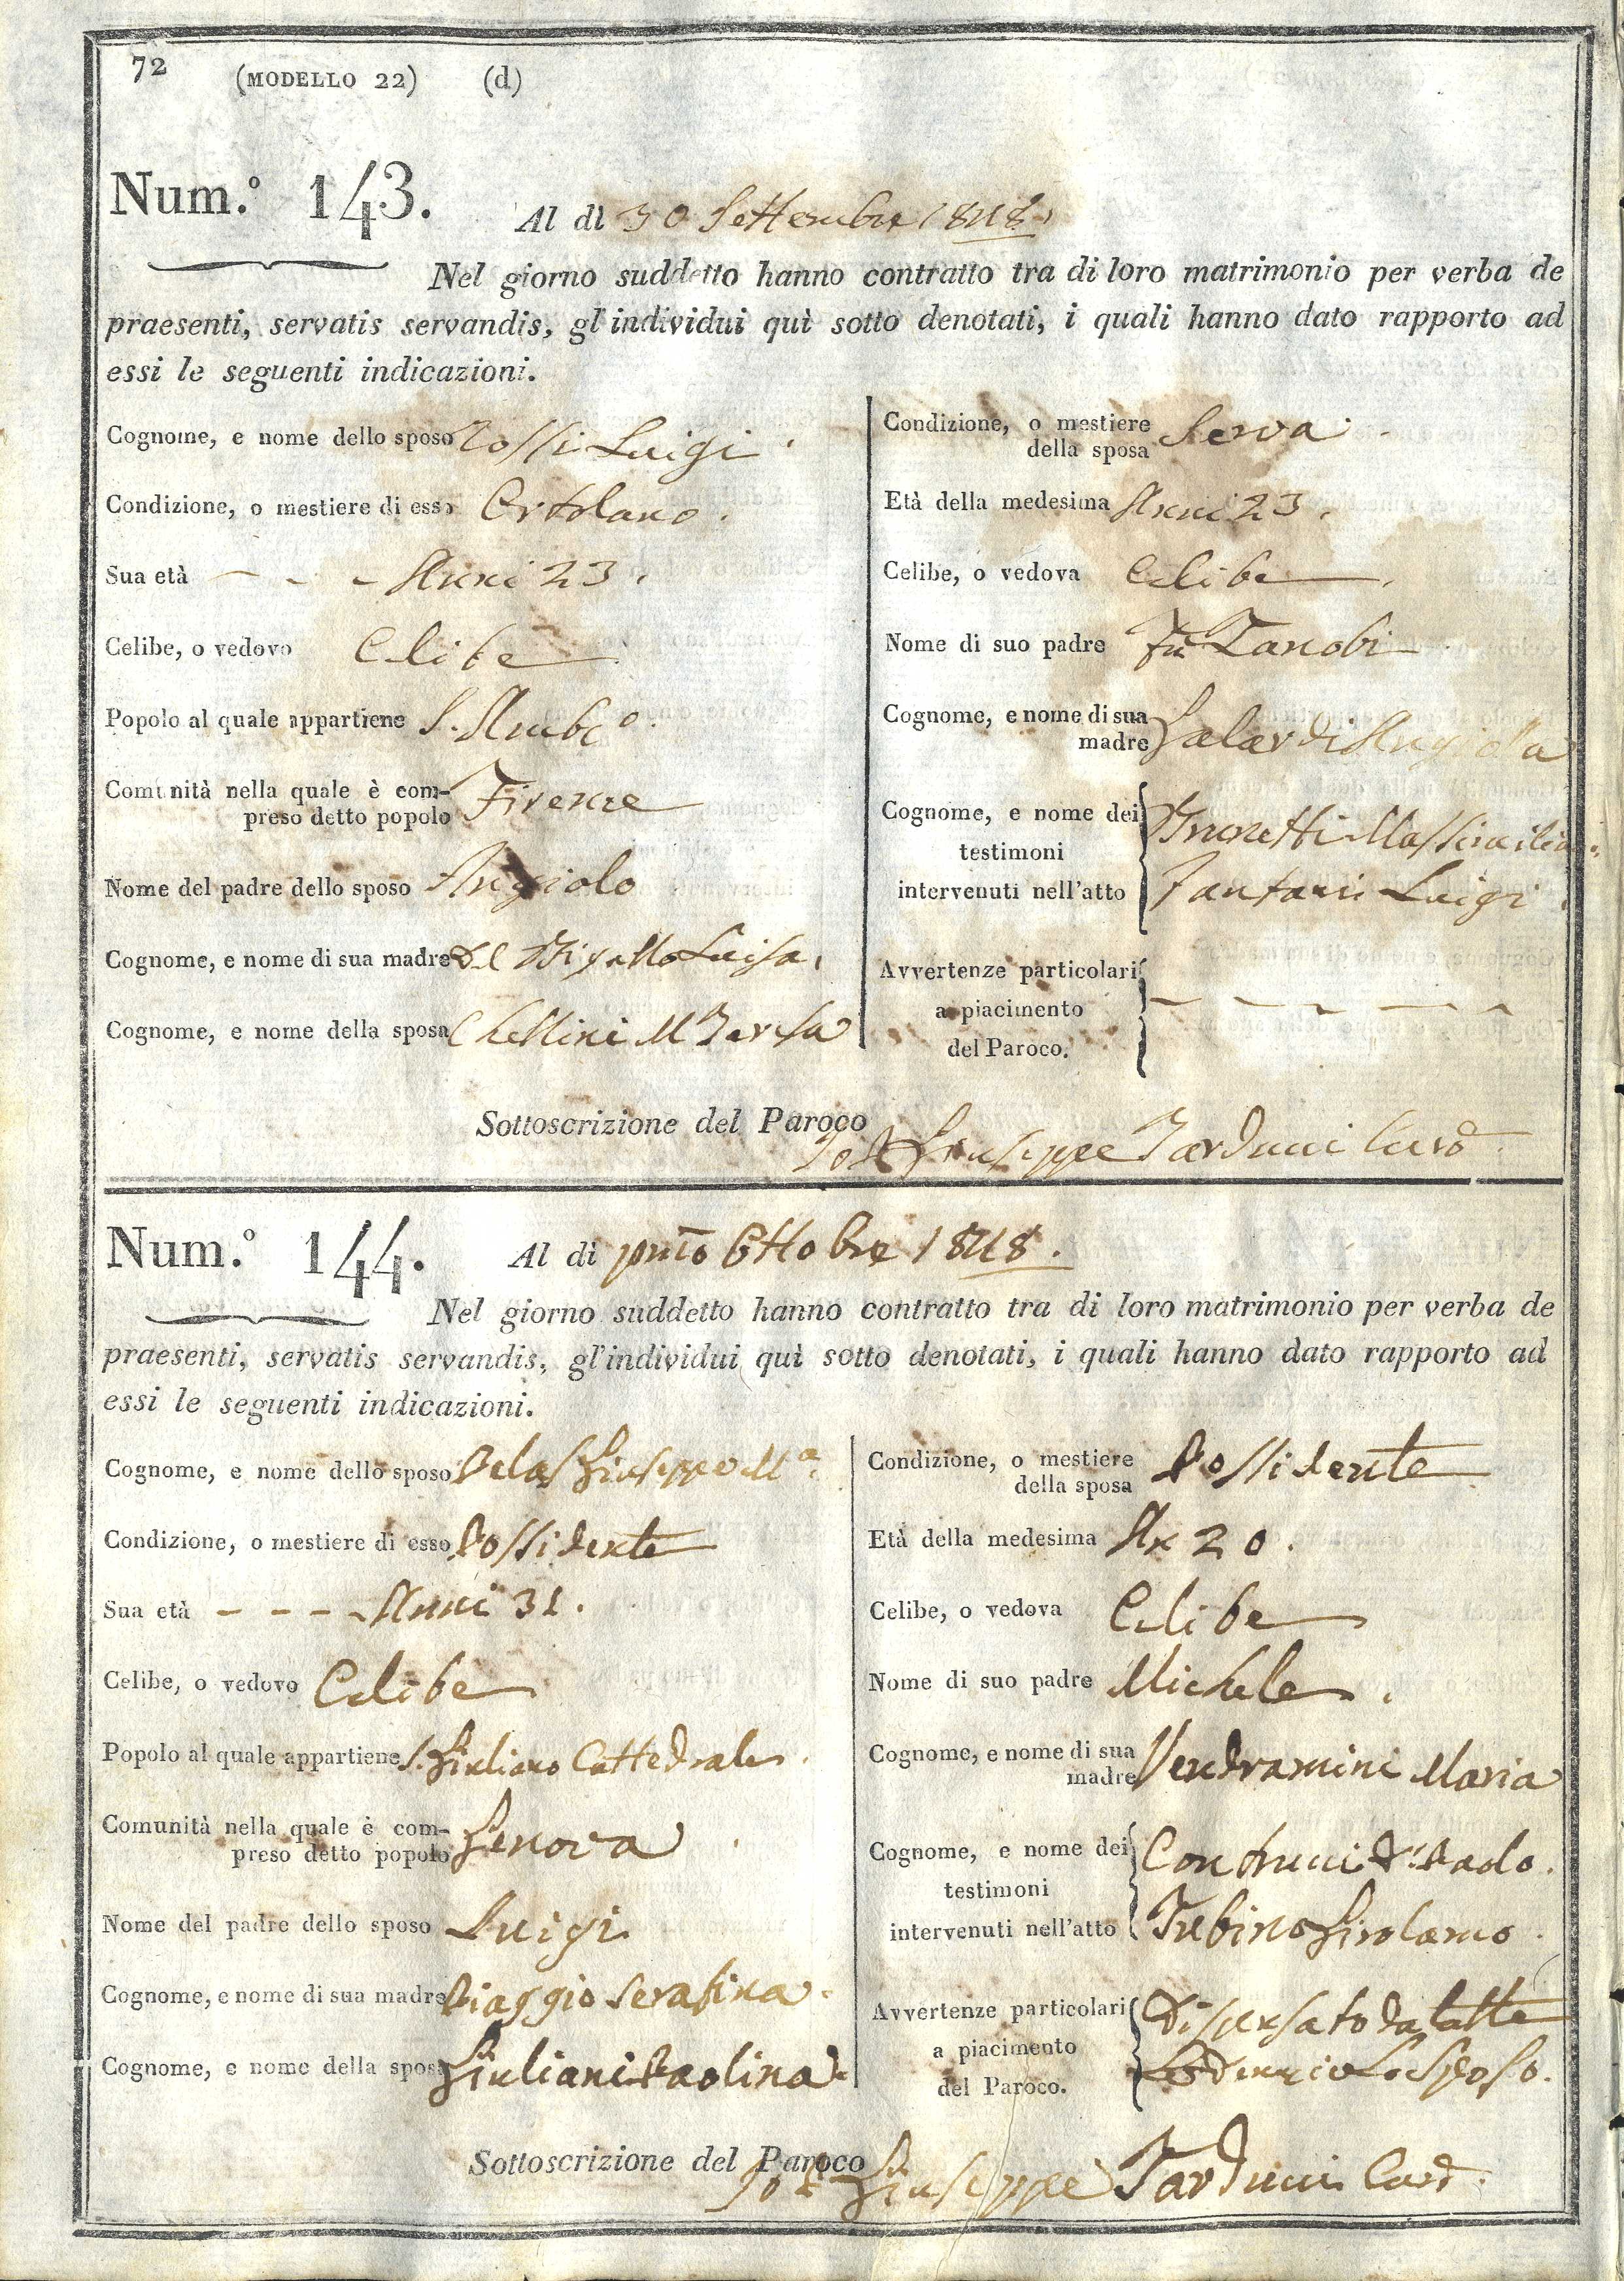 72
(MODELLO 22) (d)
Num.º 143.
Al dì 30 Settembre 1848.
Nel giorno suddetto hanno contratto tra di loro matrimonio per verba de
praesenti, servatis servandis, gl'individui quì sotto denotati, i quali hanno dato rapporto ad
essi le seguenti indicazioni.
Cognome, e nome dello sposo Rossi Luigi.
Condizione, o mestiere di esso Ortolano.
Sua età - - - Anni 23.
Celibe, o vedovo Celibe
Popolo al quale appartiene S. Ambº.
Comunità nella quale è com-
preso detto popolo Firenze
Nome del padre dello sposo Angiolo
Cognome, e nome di sua madre Del Luisa.
Cognome, e nome della sposa Chellini M Teresa
Condizione, o mestiere
della sposa Serva.
Età della medesima Anni 23.
Celibe, o vedova Celibe.
Nome di suo padre Fu Zanobi
Cognome, e nome di sua
madre Angiola
Cognome, e nome dei
testimoni
intervenuti nell'atto
Brunetti
Fantani Luigi
Avvertenze particolari
a piacimento
del Paroco.
Sottoscrizione del Paroco
Giuseppe Tarducci Curº.
Num.º 144.
Al dì pmo Ottobre 1848.
Nel giorno suddetto hanno contratto tra di loro matrimonio per verba de
praesenti, servatis servandis, gl'individui quì sotto denotati, i quali hanno dato rapporto ad
essi le seguenti indicazioni.
Cognome, e nome dello sposo Giuseppe Mª.
Condizione, o mestiere di esso Possidente
Sua età - - - Anni 31.
Celibe, o vedovo Celibe
Popolo al quale appartiene S. Giuliano Cattedrale.
Comunità nella quale è com-
preso detto popolo Genova
Nome del padre dello sposo Luigi
Cognome, e nome di sua madre Piaggio Serafina.
Cognome, e nome della sposa Giuliani Paolina
Condizione, o mestiere
della sposa Possidente
Età della medesima An 20.
Celibe, o vedova Celibe
Nome di suo padre Michele.
Cognome, e nome di sua
madre Vendramini Maria
Cognome, e nome dei
testimoni
intervenuti nell'atto
Contrucci Paolo.
Tubino Girolamo.
Avvertenze particolari
a piacimento
del Paroco.
Dispensato da tutte
Sposo.
Sottoscrizione del Paroco
Giuseppe Tarducci Curº.